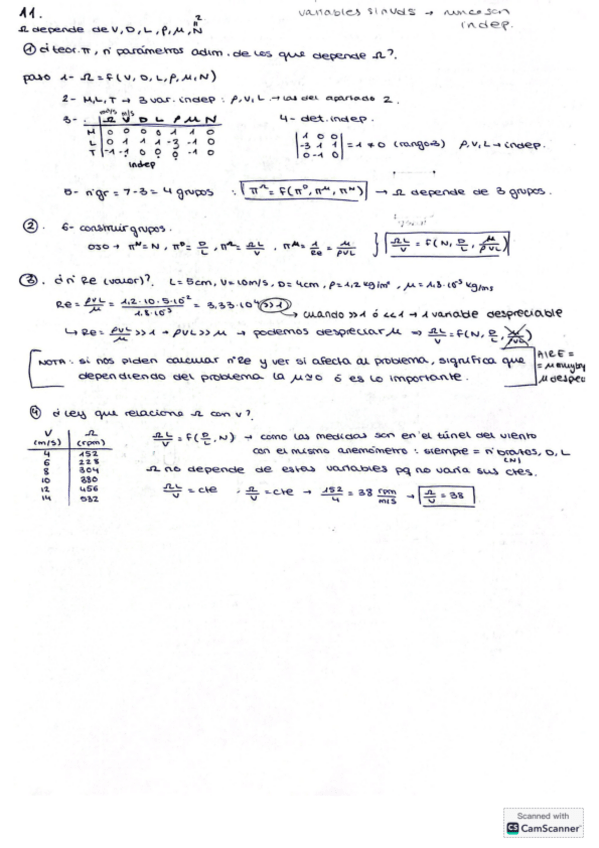 11.
variables sin uds → nunca son indep.
Ω depende de V, D, L, ρ, μ, N
① ¿teor. π, nº parámetros adim. de los que depende Ω?.
paso 1- Ω = f(V, D, L, ρ, μ, N)
2- M, L, T → 3 var. indep: ρ, V, L → las del apartado 2.
3- . | Ω V D L ρ μ N
M | 0 0 0 0 1 1 0
L | 0 1 1 1 -3 -1 0
T | -1 -1 0 0 0 -1 0
indep
4- det. indep.
| 1 0 0 |
| -3 1 1 | = 1 ≠ 0 (rango 3) ρ, V, L → indep.
| 0 -1 0 |
5- nºgr = 7-3 = 4 grupos : π^Ω = f(π^D, π^μ, π^N) → Ω depende de 3 grupos.
② . 6- construir grupos.
π^N = N, π^D = D/L, π^Ω = ΩL/V, π^μ = 1/Re = μ/ρVL } ΩL/V = f(N, D/L, μ/ρVL)
③ . ¿nº Re (valor)?. L = 5cm, V = 10m/s, D = 4cm, ρ = 1,2 kg/m³, μ = 1,8·10⁻⁵ kg/ms
Re = ρVL/μ = 1,2·10·5·10⁻²/1,8·10⁻⁵ = 3,33·10⁴ >>1
→ cuando >>1 ó <<1 → 1 variable despreciable
↳ Re = ρVL/μ >>1 → ρVL >> μ → podemos despreciar μ ⇒ ΩL/V = f(N, D/L, μ/ρVL)
NOTA: si nos piden calcular nºRe y ver si afecta al problema, significa que
dependiendo del problema la μ≈0 ó es lo importante.
AIRE =
= μ muy
μ despr
④ ¿ley que relacione Ω con V?.
V (m/s) | Ω (rpm)
4 | 152
6 | 228
8 | 304
10 | 380
12 | 456
14 | 532
ΩL/V = f(D/L, N) → como las medidas son en el túnel del viento
con el mismo anemómetro: siempre = nº brazos, D, L
(N)
Ω no depende de estas variables pq no varía sus ctes.
ΩL/V = cte , Ω/V = cte → 152/4 = 38 rpm/m/s → Ω/V = 38
Scanned with
CS CamScanner